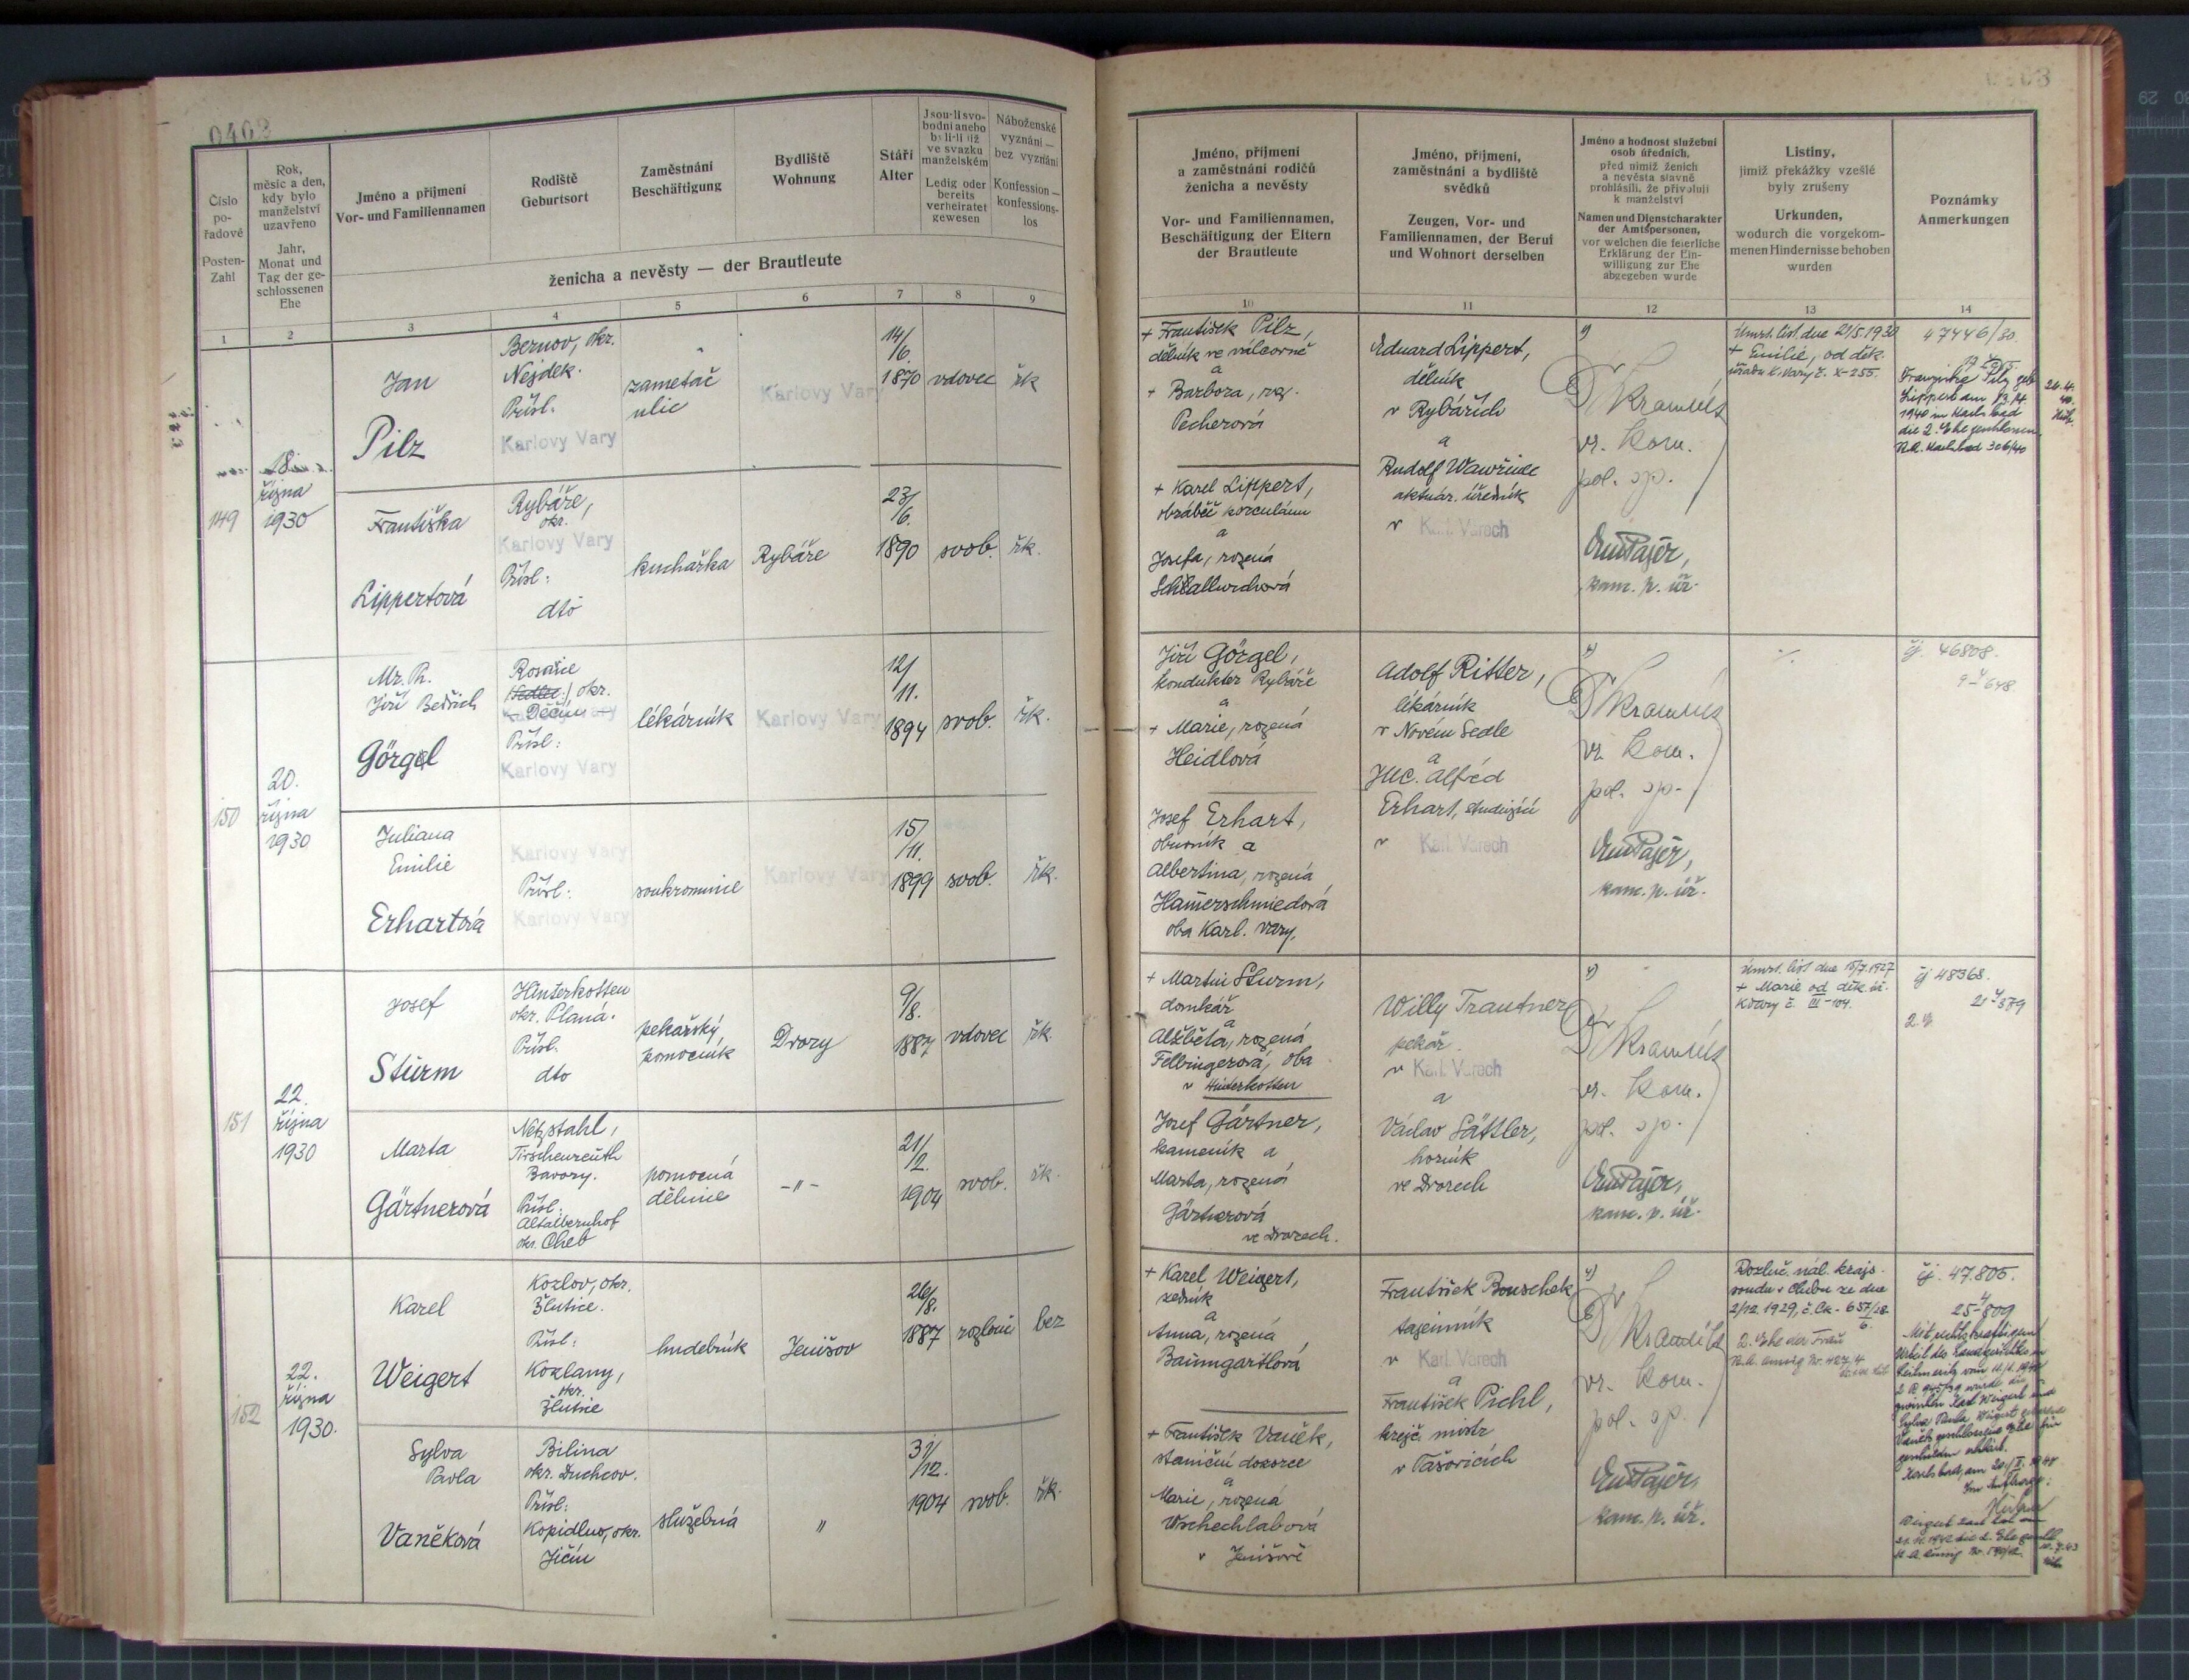 0403
Číslo
po-
řadové
Posten-
Zahl
Rok,
měsíc a den,
kdy bylo
manželství
uzavřeno
Jahr,
Monat und
Tag der ge-
schlossenen
Ehe
Jméno a příjmení
Vor- und Familiennamen
Rodiště
Geburtsort
Zaměstnání
Beschäftigung
Bydliště
Wohnung
Stáří
Alter
Jsou-li svo-
bodni anebo
byli-li již
ve svazku
manželském
Ledig oder
bereits
verheiratet
gewesen
Náboženské
vyznání —
bez vyznání
Konfession —
konfessions-
los
ženicha a nevěsty — der Brautleute
1 2 3 4 5 6 7 8 9
149
18.
října
1930
Jan
Pilz
Bernov, okr.
Nejdek.
Přísl.
Karlovy Vary
zametač
ulic
Karlovy Vary
14/
6.
1870
vdovec
řk
Františka
Lippertová
Rybáře,
okr.
Karlovy Vary
Přísl:
dto
kuchařka
Rybáře
23/
6.
1890
svob.
řk.
150
20.
října
1930
Mr. Ph.
Jiří Bedřich
Görgel
Rosnice
okr.
Děčín
Přísl:
Karlovy Vary
lékárník
Karlovy Vary
12/
11.
1894
svob.
řk.
Juliana
Emilie
Erhartová
Karlovy Vary
Přísl:
Karlovy Vary
soukromnice
Karlovy Vary
15/
11.
1899
svob.
řk.
151
22.
října
1930
Josef
Sturm
Hinterkotten
okr. Planá.
Přísl.
dto
pekařský
pomocník
Dvory
9/
8.
1887
vdovec
řk.
Marta
Gärtnerová
Netzstahl,
Tirschenreuth
Bavory.
Přísl:
Altalbernhof
okr. Cheb
pomocná
dělnice
-"-
21/
2.
1904
svob.
řk.
152
22.
října
1930.
Karel
Weigert
Kozlov, okr.
Žlutice.
Přísl:
Kozlany,
okr.
Žlutice
hudebník
Jenišov
26/
8.
1887
bez
Sylva
Pavla
Vaněková
Bilina
okr. Duchcov.
Přísl:
Kopidlno, okr.
Jičín
služebná
"
31/
12.
1904
svob.
řk.
Jméno, příjmení
a zaměstnání rodičů
ženicha a nevěsty
Vor- und Familiennamen,
Beschäftigung der Eltern
der Brautleute
Jméno, příjmení,
zaměstnání a bydliště
svědků
Zeugen, Vor- und
Familiennamen, der Beruf
und Wohnort derselben
Jméno a hodnost služební
osob úředních,
před nimiž ženich
a nevěsta slavně
prohlásili, že přivolují
k manželství
Namen und Dienstcharakter
der Amtspersonen,
vor welchen die feierliche
Erklärung der Ein-
willigung zur Ehe
abgegeben wurde
Listiny,
jimiž překážky vzešlé
byly zrušeny
Urkunden,
wodurch die vorgekom-
menen Hindernisse behoben
wurden
Poznámky
Anmerkungen
10 11 12 13 14
+ František Pilz,
dělník ve válcovně
a
+ Barbora, roz.
Pecherová
+ Karel Lippert,
obráběč porculánu
a
Josefa, rozená
Eduard Lippert,
dělník
v Rybářích
a
Rudolf Wawřinec
aktuár. úředník
v Karl. Varech
vr. kom.
pol. sp.
kanc. p. úř.
Úmrt. list dne 21/5.1930
+ Emilie, od děk.
úřadu K. Vary č. X-255.
47446/30
Franziska Pilz geb
Lippert am 13./4.
1940 in Karlsbad
die 2. Ehe geschlossen.
St.A. Karlsbad 306/40
Jiří Görgel,
kondukter Rybáře
a
+ Marie, rozená
Heidlová
Josef Erhart,
obuvník a
Albertina, rozená
Hamerschmiedová
oba Karl. Vary.
Adolf Ritter,
lékárník
v Novém Sedle
a
JUC. Alfréd
Erhart, studující
v Karl. Varech
vr. kom.
pol. sp.
kanc. p. úř.
./.
čj. 46808.
+ Martin Sturm,
domkář
a
Alžběta, rozená
Felbingerová, oba
v Hinterkotten
Josef Gärtner,
kameník a
Marta, rozená
Gärtnerová
ve Dvorech.
Willy Trautner
pekař
v Karl. Varech
a
Václav Sättler,
horník
ve Dvorech
vr. kom.
pol. sp.
kanc. p. úř.
Úmrt. list dne 15/7.1927
+ Marie od děk. úř.
K.Vary č. III-104.
čj 48368.
+ Karel Weigert,
zedník
a
Anna, rozená
Baumgartlová
+ František Vaněk,
staniční dozorce
a
Marie, rozená
Wschechlabová
v Jenišově
František Bouschek
tajemník
v Karl. Varech
a
František Pichl,
krejč. mistr
v Tašovicích
vr. kom.
pol. sp.
kanc. p. úř.
Rozluč. nál. krajs.
soudu v Chebu ze dne
2/12 1929, č. Ck. 657/28
6.
2. Ehe der Frau
čj. 47.805.
Mit rechtskräftigem
Urteil des Landgerichtes in
Leitmeritz
wurde die
zwischen Karl Weigert und
Sylva Paula Weigert geborene
Vaněk geschlossene Ehe für
geschieden erklärt.